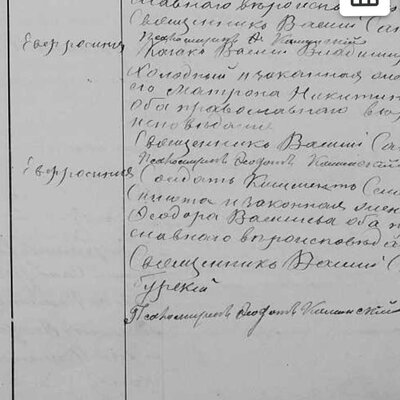 славнаго вѣроисповѣ
Священникъ Василій Са
Псаломщикъ Ѳ. Каминскій
Евфросинія
Казакъ Василій Владимір
Холодный и законная же
его Матрона Никитин
оба православнаго вѣ
исповѣданія
Священникъ Василій Са
Псаломщикъ Ѳеофанъ Каминскій
Евфросинія
Солдатъ Климентъ Сем
и законная жен
Ѳеодора Василіева оба п
славнаго вѣроисповѣда
Священникъ Василій С
Гурскій
Псаломщикъ Ѳеофанъ Каминскій